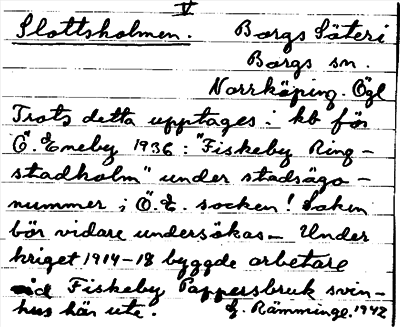 V
Slottsholmen. Borgs Säteri
Borgs sn.
Norrköping. Ögl
Trots detta upptages i kb för
Ö. Eneby 1936: "Fiskeby Ring-
stadholm" under stadsägo-
nummer i Ö.E. socken! Saken
bör vidare undersökas – Under
kriget 1914-18 byggde arbetare
vid Fiskeby Pappersbruk svin-
hus här ute. G. Rämminge. 1942